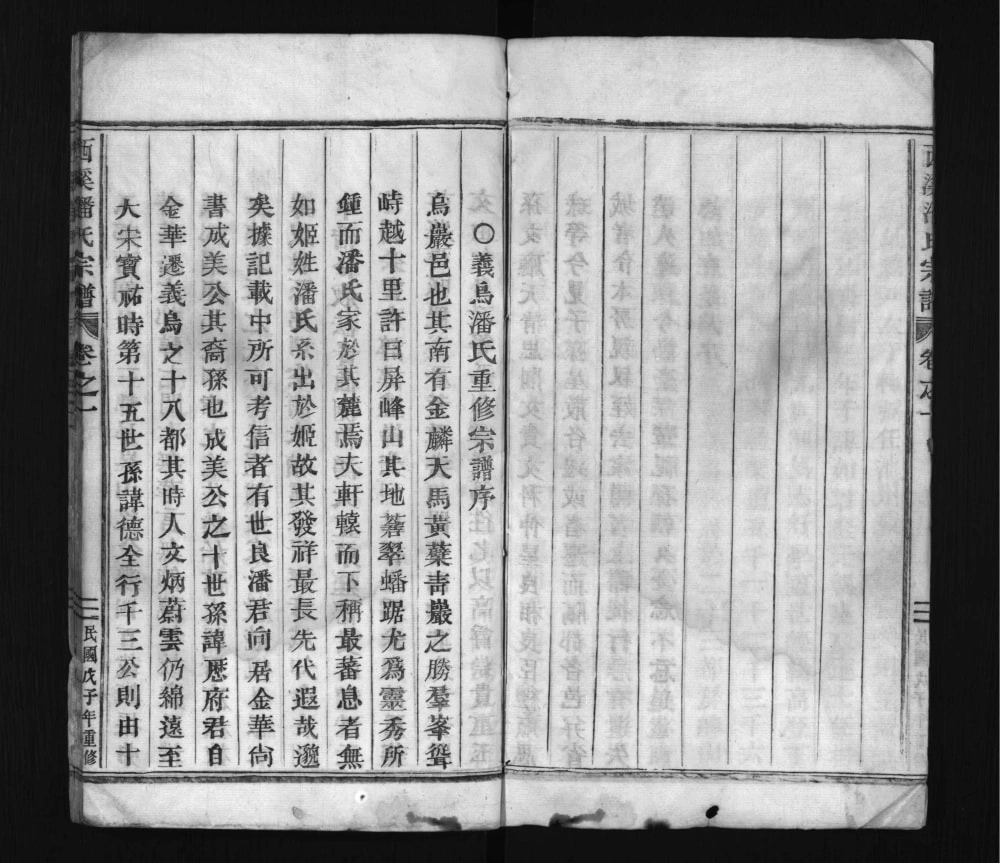 ○義烏潘氏重修宗譜序
烏巖邑也其南有金麟天馬黃蘗壽巖之勝羣峯聳
峙越十里許曰屏峰山其地蒼翠蟠踞尤爲靈秀所
鍾而潘氏家於其麓焉夫軒轅而下稱最蕃息者無
如姬姓潘氏系出於姬故其發祥最長先代遐哉邈
矣據記載中所可考信者有世良潘君向居金華尙
書成美公其裔孫也成美公之十世孫諱歷府君自
金華遷義烏之十八都其時人文炳蔚雲仍綿遠至
大宋寶祐時第十五世孫諱德全行千三公則出十
西溪潘氏宗譜
卷之一
民國戊子年重修